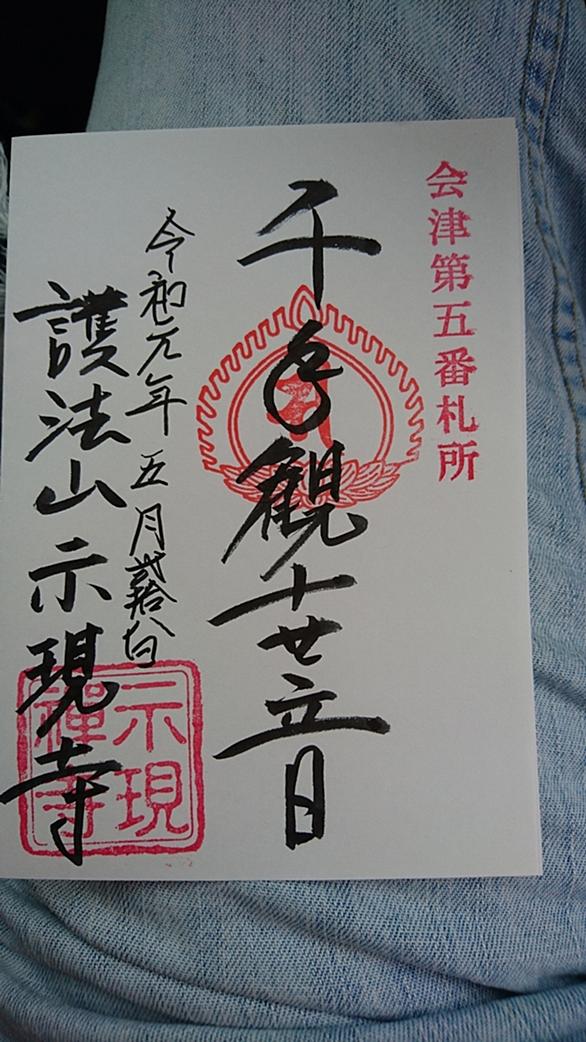 会津第五番札所
千手観世音
令和元年五月貳拾八日
護法山示現寺
示現
禪寺